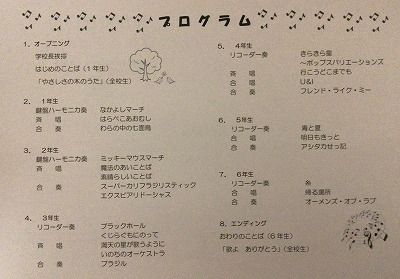 プログラム
1．オープニング
学校長挨拶
はじめのことば（1年生）
「やさしさの木のうた」（全校生）
2．1年生
鍵盤ハーモニカ奏　なかよしマーチ
斉　唱　はらぺこあおむし
合　奏　わらの中の七面鳥
3．2年生
鍵盤ハーモニカ奏　ミッキーマウスマーチ
斉　唱　魔法のあいことば
素晴らしいことば
合　奏　スーパーカリフラジリスティック
エクスピアリドーシャス
4．3年生
リコーダー奏　ブラックホール
斉　唱　くじらぐもにのって
満天の星が歌うように
いのちのオーケストラ
合　奏　ブラジル
5．4年生
リコーダー奏　きらきら星
～ポップスバリエーションズ
斉　唱　行こうどこまでも
合　唱　U&I
合　奏　フレンド・ライク・ミー
6．5年生
リコーダー奏　青と夏
合　唱　明日もきっと
合　奏　アシタカせっ記
7．6年生
リコーダー奏　糸
合　唱　帰る場所
合　奏　オーメンズ・オブ・ラブ
8．エンディング
おわりのことば（6年生）
「歌よ　ありがとう」（全校生）